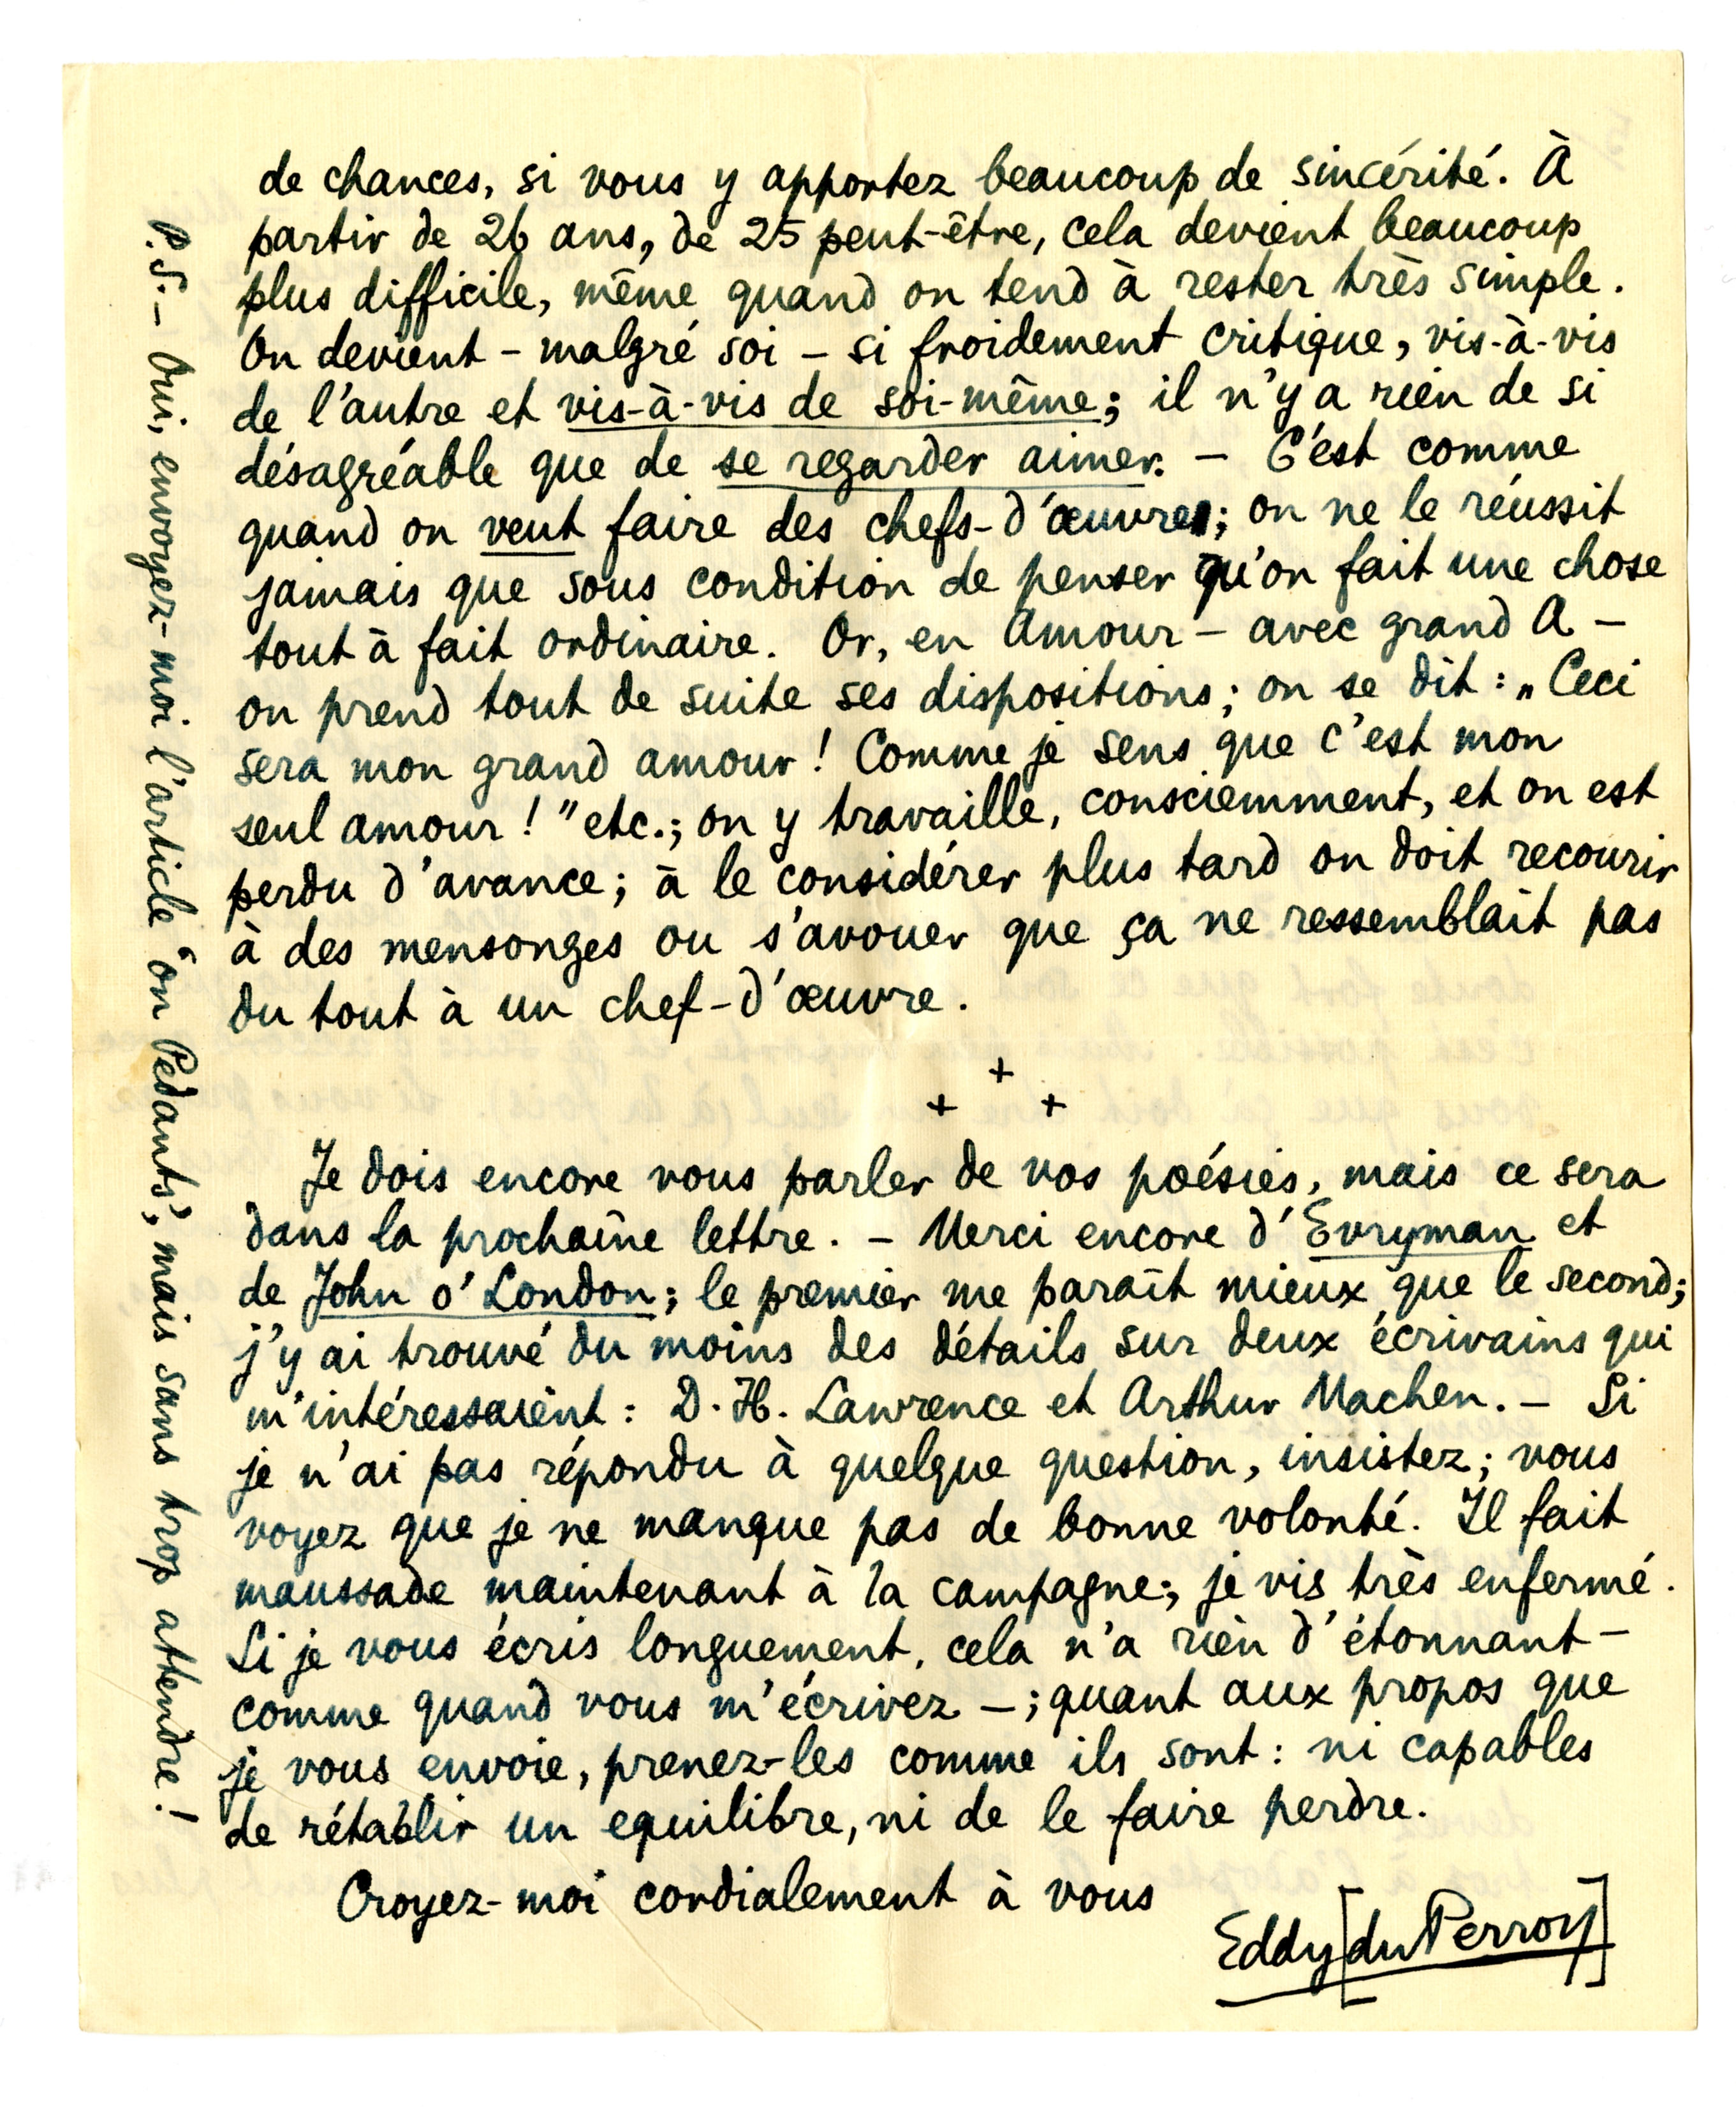 de chances, si vous y apportez beaucoup de sincérité. À
partir de 26 ans, de 25 peut-être, cela devient beaucoup
plus difficile, même quand on tend à rester très simple.
On devient - malgré soi - si froidement critique, vis-à-vis
de l'autre et vis-à-vis de soi-même; il n'y a rien de si
désagréable que de se regarder aimer. - C'est comme
quand on veut faire des chefs-d'œuvre; on ne le réussit
jamais que sous condition de penser qu'on fait une chose
tout à fait ordinaire. Or, en Amour - avec grand A -
on prend tout de suite ses dispositions; on se dit: „Ceci
sera mon grand amour! Comme je sens que c'est mon
seul amour!” etc.; on y travaille, consciemment, et on est
perdu d'avance; à le considérer plus tard on doit recourir
à des mensonges ou s'avouer que ça ne ressemblait pas
du tout à un chef-d'œuvre.
+
+ +
Je dois encore vous parler de vos poésies, mais ce sera
dans la prochaine lettre. - Merci encore d'Evryman et
de John o' London; le premier me paraît mieux que le second;
j'y ai trouvé du moins des détails sur deux écrivains qui
m'intéressaient: D. H. Lawrence et Arthur Machen. - Si
je n'ai pas répondu à quelque question, insistez; vous
voyez que je ne manque pas de bonne volonté. Il fait
maussade maintenant à la campagne; je vis très enfermé.
Si je vous écris longuement, cela n'a rien d'étonnant -
comme quand vous m'écrivez -; quant aux propos que
je vous envoie, prenez-les comme ils sont: ni capables
de rétablir un equilibre, ni de le faire perdre.
Croyez-moi cordialement à vous
Eddy [du Perron]
P.S. - Oui, envoyez-moi l'article "on Pedants", mais sans trop attendre!